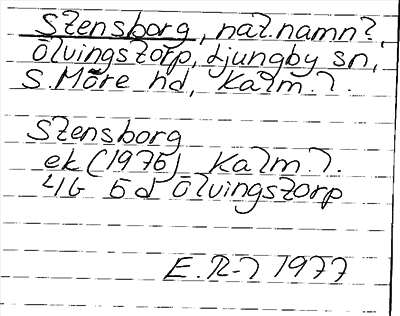 Stensborg, nat.namn?,
Ölvingstorp, Ljungby sn,
S. Möre hd, Kalm. l.
Stensborg
ek (1976) Kalm. l.
4G 5d Ölvingstorp
E. R-l 1977